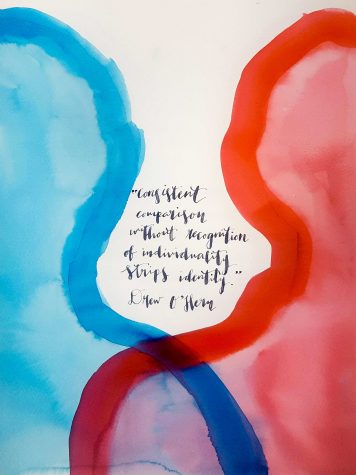 "consistent
comparison
without recognition
of individuality
strips identity."
Drew O'Hern